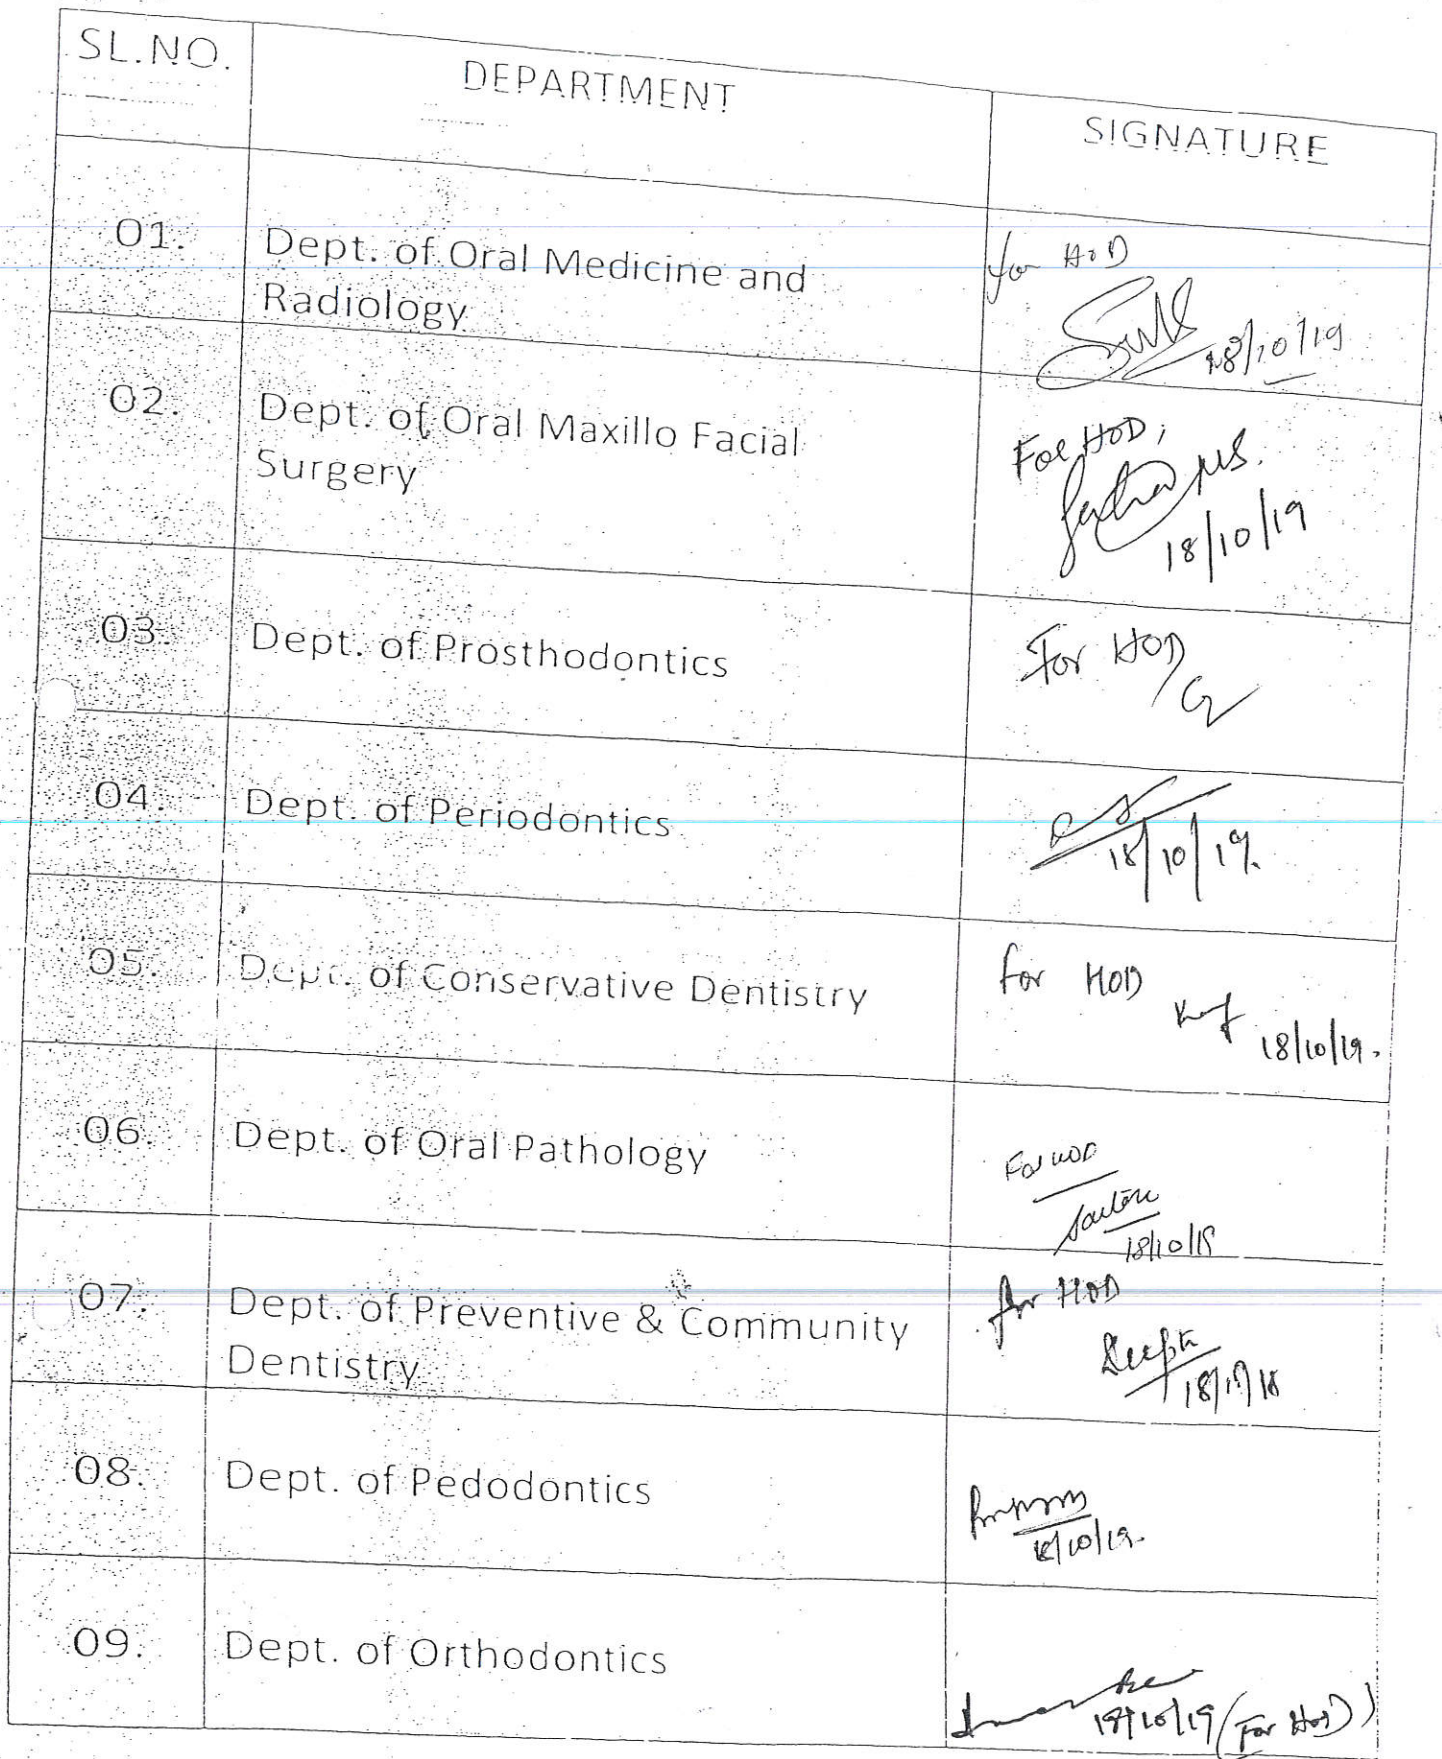 SL.NO.
DEPARTMENT
SIGNATURE
01.
Dept. of Oral Medicine and
Radiology
for HOD
18/10/19
02.
Dept. of Oral Maxillo Facial
Surgery
For HOD,
18/10/19
03.
Dept. of Prosthodontics
For HOD
04.
Dept. of Periodontics
18/10/19.
05.
Dept. of Conservative Dentistry
for HOD
18/10/19.
06.
Dept. of Oral Pathology
For HOD
07.
Dept. of Preventive & Community
Dentistry
for HOD
08.
Dept. of Pedodontics
18/10/19.
09.
Dept. of Orthodontics
18/10/19 (For HOD)